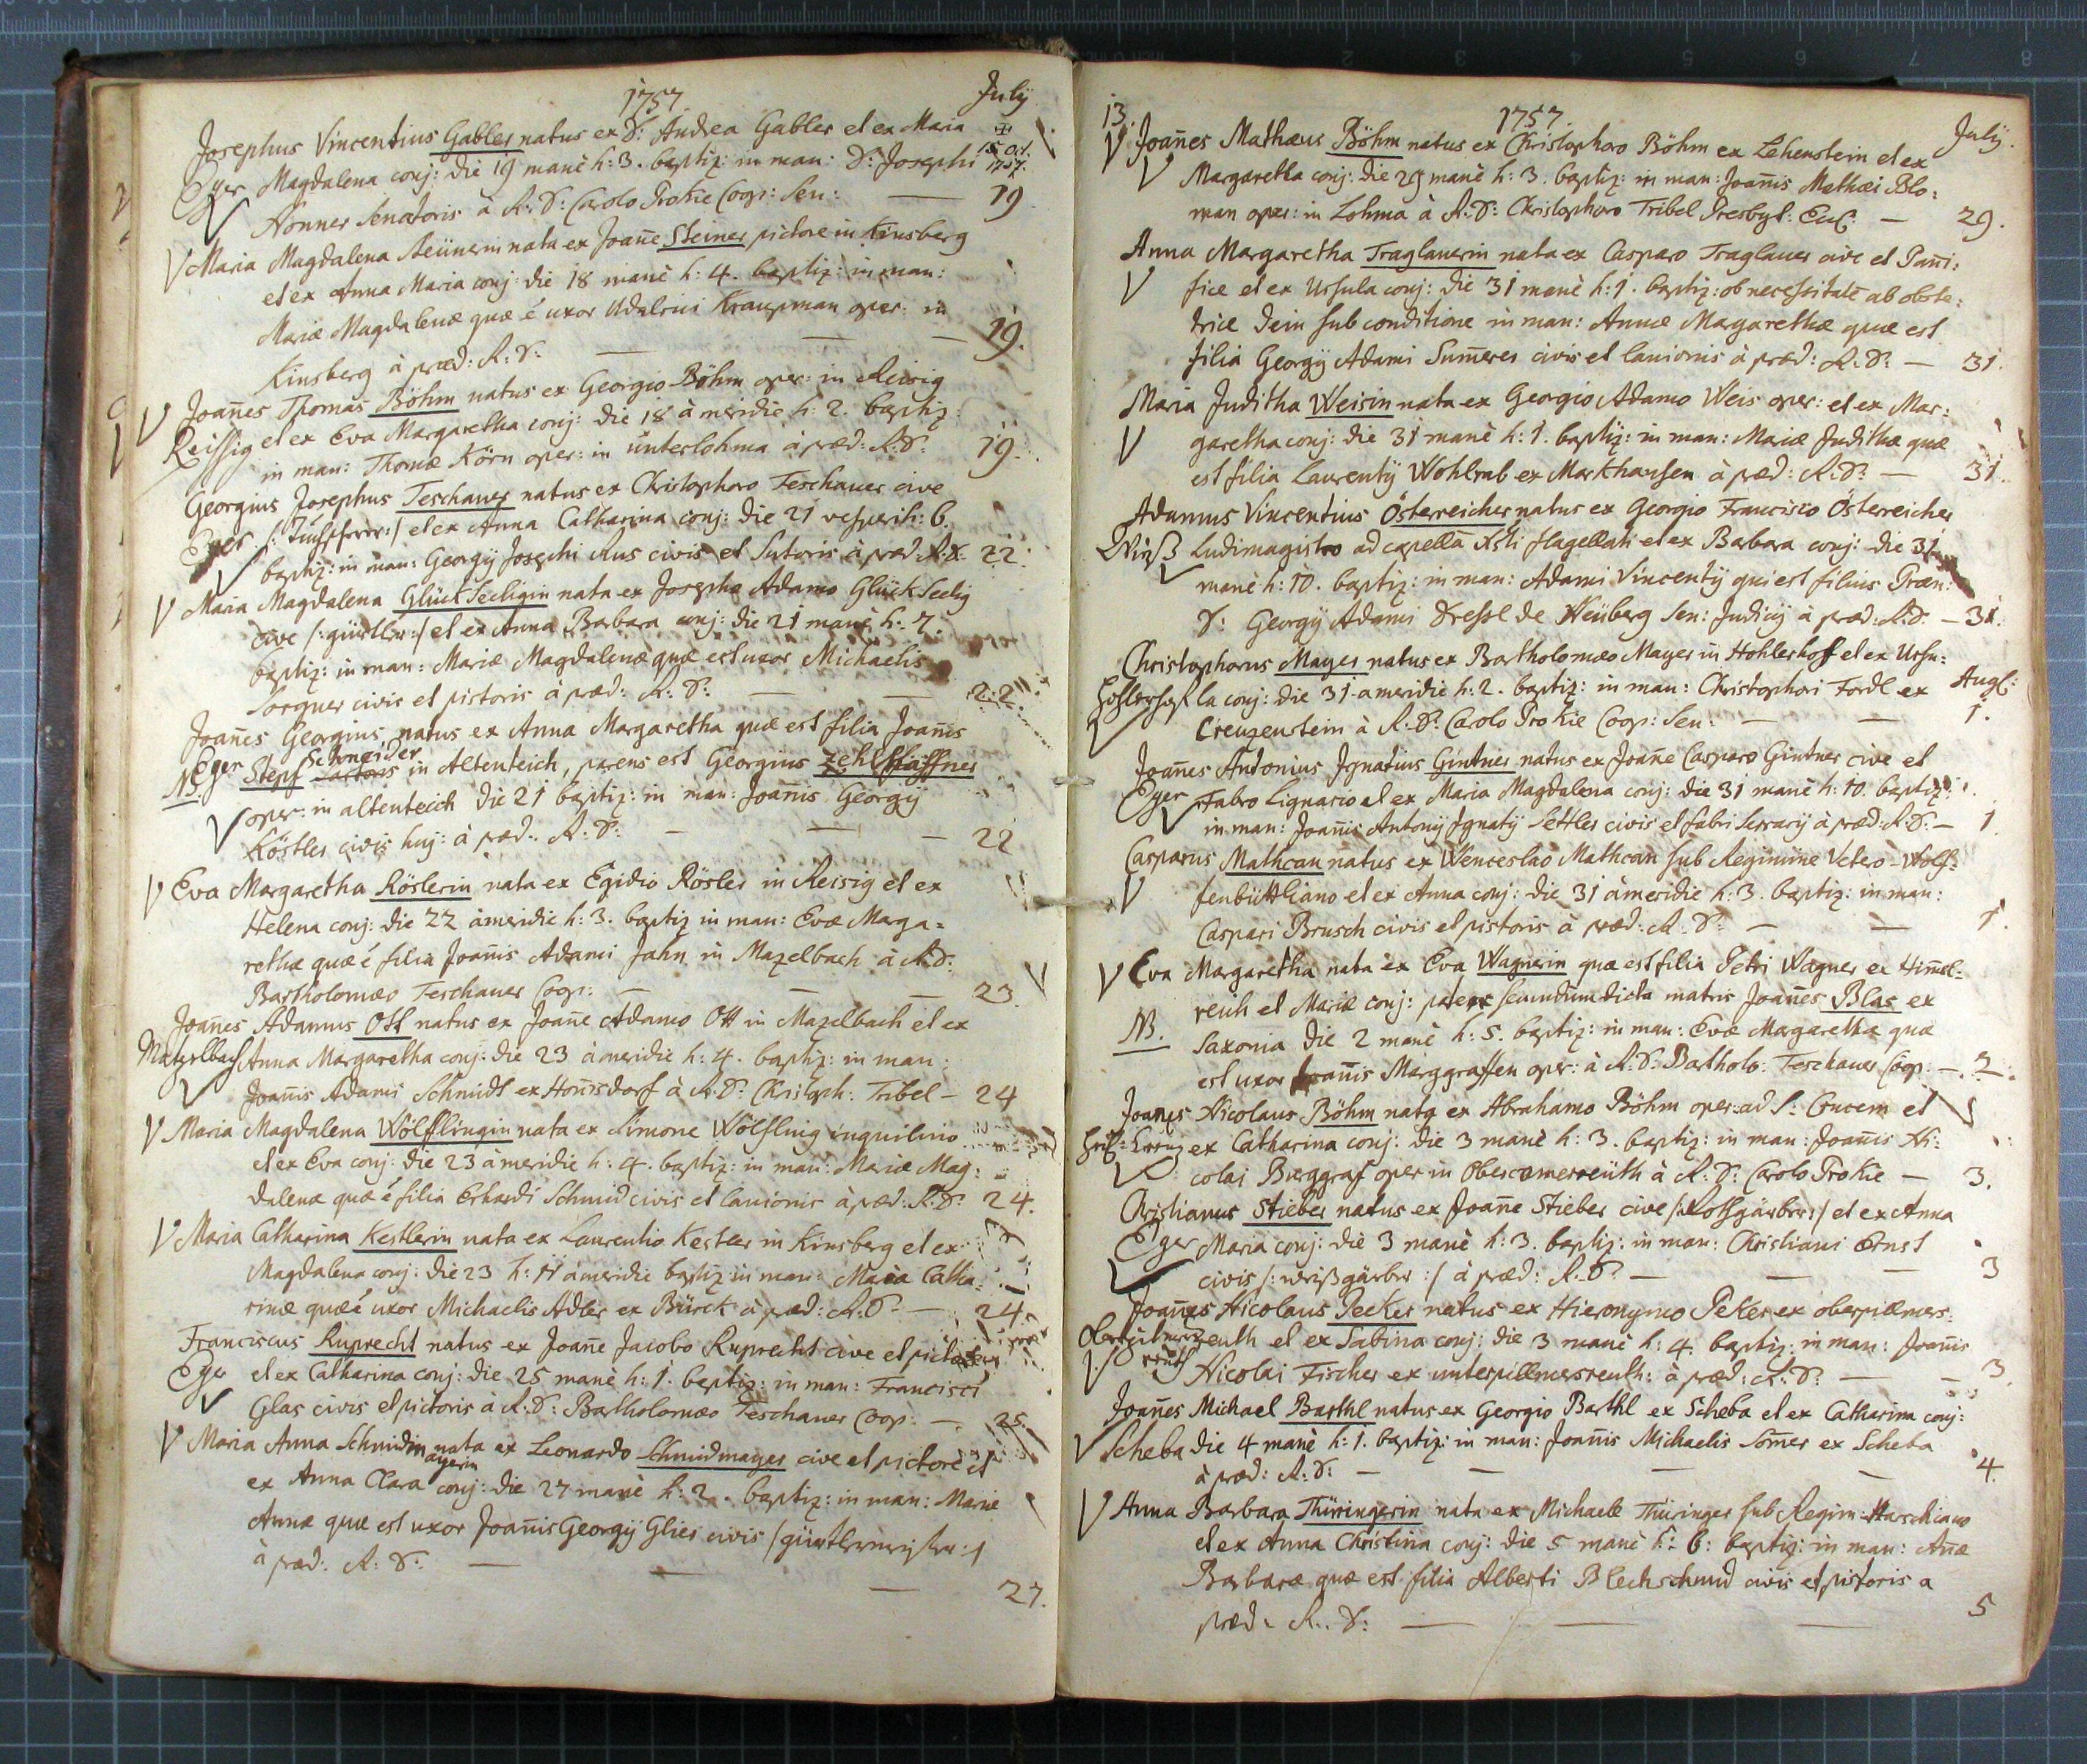 1757.
July
Josephus Vincentius Gabler natus ex D: Andrea Gabler et ex Maria
15 Oct: 1757.
Eger Magdalena conj: die 19 manè h: 3. baptiz: in man: D: Josephi
Honner Senatoris à R: D: Carolo Prokie Coop: Sen: — 19
Maria Magdalena nata ex Joane Steiner pictore in Kinsberg
et ex Anna Maria conj: die 18 manè h: 4. baptiz: in man:
Mariæ Magdalenæ quæ é uxor Udalrici Kraupman oper: in
Kinsberg à præd: R: D: — — — 19.
Joañes Thomas Böhm natus ex Georgio Böhm oper: in Reisig
Reissig et ex Eva Margaretha conj: die 18 à meridie h: 2. baptiz:
in man: Thomæ Körn oper: in unterlohma à præd: R: D: 19.
Georgius Josephus Teschauer natus ex Christophoro Teschauer cive
Eger et ex Anna Catharina conj: die 21 vesperi h: 6.
baptiz: in man: Georgÿ Josephi Rus civis et Sutoris à præd: R: D: 22.
Maria Magdalena Glückseeligin nata ex Josepho Adamo Glückseelig
cive /:gürtler:/ et ex Anna Barbara conj: die 21 manè h: 7.
baptiz: in man: Mariæ Magdalenæ quæ est uxor Michaelis
Sorgner civis et pistoris à præd: R: D: — — 22.
Joañes Georgius natus ex Anna Margaretha quæ est filia Joañis
Eger Schneider
NB. Stepf in Altenteich, parens est Georgius Zehlpfaffner
oper: in altenteich die 21 baptiz: in man: Joañis Georgÿ
Köstler civis huj: à præd: R: D: — — — 22
Eva Margaretha Röslerin nata ex Egidio Rösler in Reisig et ex
Helena conj: die 22 à meridie h: 3. baptiz in man: Evæ Marga=
rethæ quæ é filia Joañis Adami Jahn in Mazelbach à R: D:
Bartholomæo Teschauer Coop: — — — 23.
Joañes Adamus Ott natus ex Joañe Adamo Ott in Mazelbach et ex
Matzelbach Anna Margaretha conj: die 23 à meridie h: 4. baptiz: in man:
Joañis Adami Schmidt ex Honnsdorf à R: D: Christoph: Tribel — 24
Maria Magdalena Wölfflingin nata ex Simone Wölfling inquilino
et ex Eva conj: die 23 à meridie h: 4. baptiz: in man: Mariæ Mag:
dalenæ quæ é filia Erhardi Schmid civis et lanionis à præd: R: D: 24.
Maria Catharina Kestlerin nata ex Laurentio Kestler in Kinsberg et ex
Magdalena conj: die 23 h: 11 à meridie baptiz: in man: Maria Catha:
rinæ quæ é uxor Michaelis Adler ex Bürck à præd: R: D: — 24
Franciscus Ruprecht natus ex Joañe Jacobo Ruprecht cive et
Eger et ex Catharina conj: die 25 manè h: 1. baptiz: in man: Francisci
Glas civis et pictoris à R: D: Bartholomæo Teschauer Coop: — 25.
Maria Anna Schmidm
ayerin nata ex Leonardo Schmidmayer cive et pictore et
ex Anna Clara conj: die 27 manè h: 2. baptiz: in man: Mariæ
Annæ quæ est uxor Joañis Georgÿ Glier civis /gürtlermeister:/
à præd: R: D: — — — 27.
13.
1757.
July.
Joañes Mathæus Böhm natus ex Christophoro Böhm ex Lehenstein et ex
Margaretha conj: die 29 manè h: 3. baptiz: in man: Joañis Mathæi Blo:
man oper: in Lohma à R: D: Christophoro Tribel Presbyt: Cur: — 29.
Anna Margaretha Traglauerin nata ex Casparo Traglauer cive et Pani:
fice et ex Ursula conj: die 31 manè h: 1. baptiz: ob necessitatē ab obste:
trice dein sub conditione in man: Annæ Margarethæ quæ est
filia Georgÿ Adami Sumerer civis et lanionis à præd: R: D: — 31.
Maria Juditha Weisin nata ex Georgio Adamo Weis oper: et ex Mar:
garetha conj: die 31 manè h: 1. baptiz: in man: Mariæ Judithæ quæ
est filia Laurentÿ Wohlrab ex Markhausen à præd: R: D: — 31.
Adamus Vincentius Österreicher natus ex Georgio Francisco Österreicher
Ludimagistro ad capellā Xsti flagellati et ex Barbara conj: die 31
manè h: 10. baptiz: in man: Adami Vincentÿ qui est filius Præn:
D: Georgÿ Adami Dressl de Neüberg Sen: Judicÿ à præd: R: D: — 31.
Christophorus Mayer natus ex Bartholomæo Mayer in Hohlerhoff et ex Ursu:
Augs:
Hohlerhof la conj: die 31 à meridie h: 2. baptiz: in man: Christophori Fordl ex
Creuzenstein à R: D: Carolo Prokie Coop: Sen: — — 1.
Joañes Antonius Ignatius Gintner natus ex Joañe Casparo Gintner cive et
Eger Fabro Lignario et ex Maria Magdalena conj: die 31 manè h: 10. baptiz:
in man: Joañis Antonÿ Ignatÿ Settler civis et fabri Serrarÿ à præd: R: D: — 1.
Casparus Mathean natus ex Wenceslao Mathean sub Regimine Vetero-Wolf=
fenbüttliano et ex Anna conj: die 31 à meridie h: 3. baptiz: in man:
Caspari Brusch civis et pistoris à præd: R: D: — — 1.
Eva Margaretha nata ex Eva Wagnerin quæ est filia Petri Wagner ex Himel=
reich et Mariæ conj: pater secundum dicta matris Joañes Blas ex
NB. Saxonia die 2 manè h: 5. baptiz: in man: Evæ Margarethæ quæ
est uxor Joañis Marggraffen oper: à R: D: Bartholo: Teschauer Coop: — 2.
Joañes Nicolaus Böhm natq ex Abrahamo Böhm oper: ad S: Crucem et
ex Catharina conj: die 3 manè h: 3. baptiz: in man: Joañis Ni:
colai Burggraf oper in Obercamerreüth à R: D: Carolo Prokie — 3.
Christianus Stieber natus ex Joañe Stieber cive /:Rothgärber:/ et ex Anna
Eger Maria conj: die 3 manè h: 3. baptiz: in man: Christiani Ernst
civis /:weißgärber:/ à præd: R: D: — — — 3
Joañes Nicolaus Pecker natus ex Hieronymo Peker ex oberpilmers:
reuth et ex Sabina conj: die 3 manè h: 4. baptiz: in man: Joañis
Nicolai Fischer ex unterpillmersreuth: à præd: R: D: — — 3.
Joañes Michael Barthl natus ex Georgio Barthl ex Scheba et ex Catharina conj:
Scheba die 4 manè h: 1. baptiz: in man: Joañis Michaelis Somer ex Scheba
à præd: R: D: — — — — 4.
Anna Barbara Thüringerin nata ex Michaele Thüringer sub Regim: Harschiano
et ex Anna Christina conj: die 5 manè h: 6: baptiz: in man: Añæ
Barbaræ quæ est filia Alberti Blechschmid civis et pistoris a
præd: R: D: — — — 5